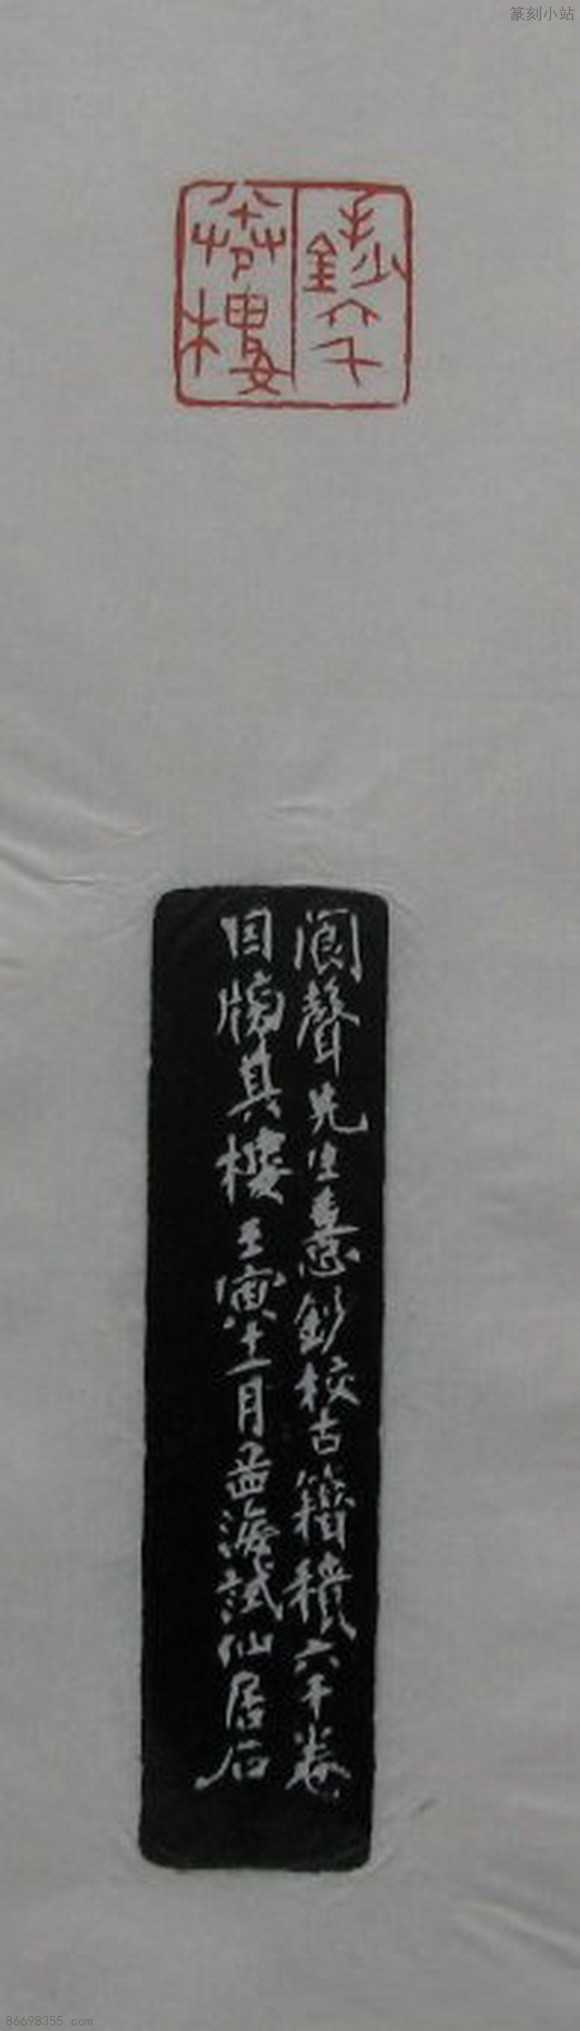 篆刻小站
鈔六千
卷樓
閬聲先生憙鈔校古籍積六千卷
因牓其樓壬寅十一月孟海試仙居石
86698355.com